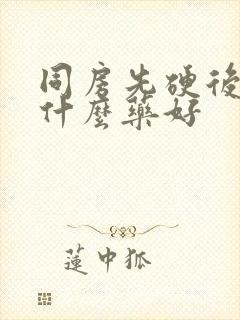 同房先硬後
什麼藥好
蓮中狐